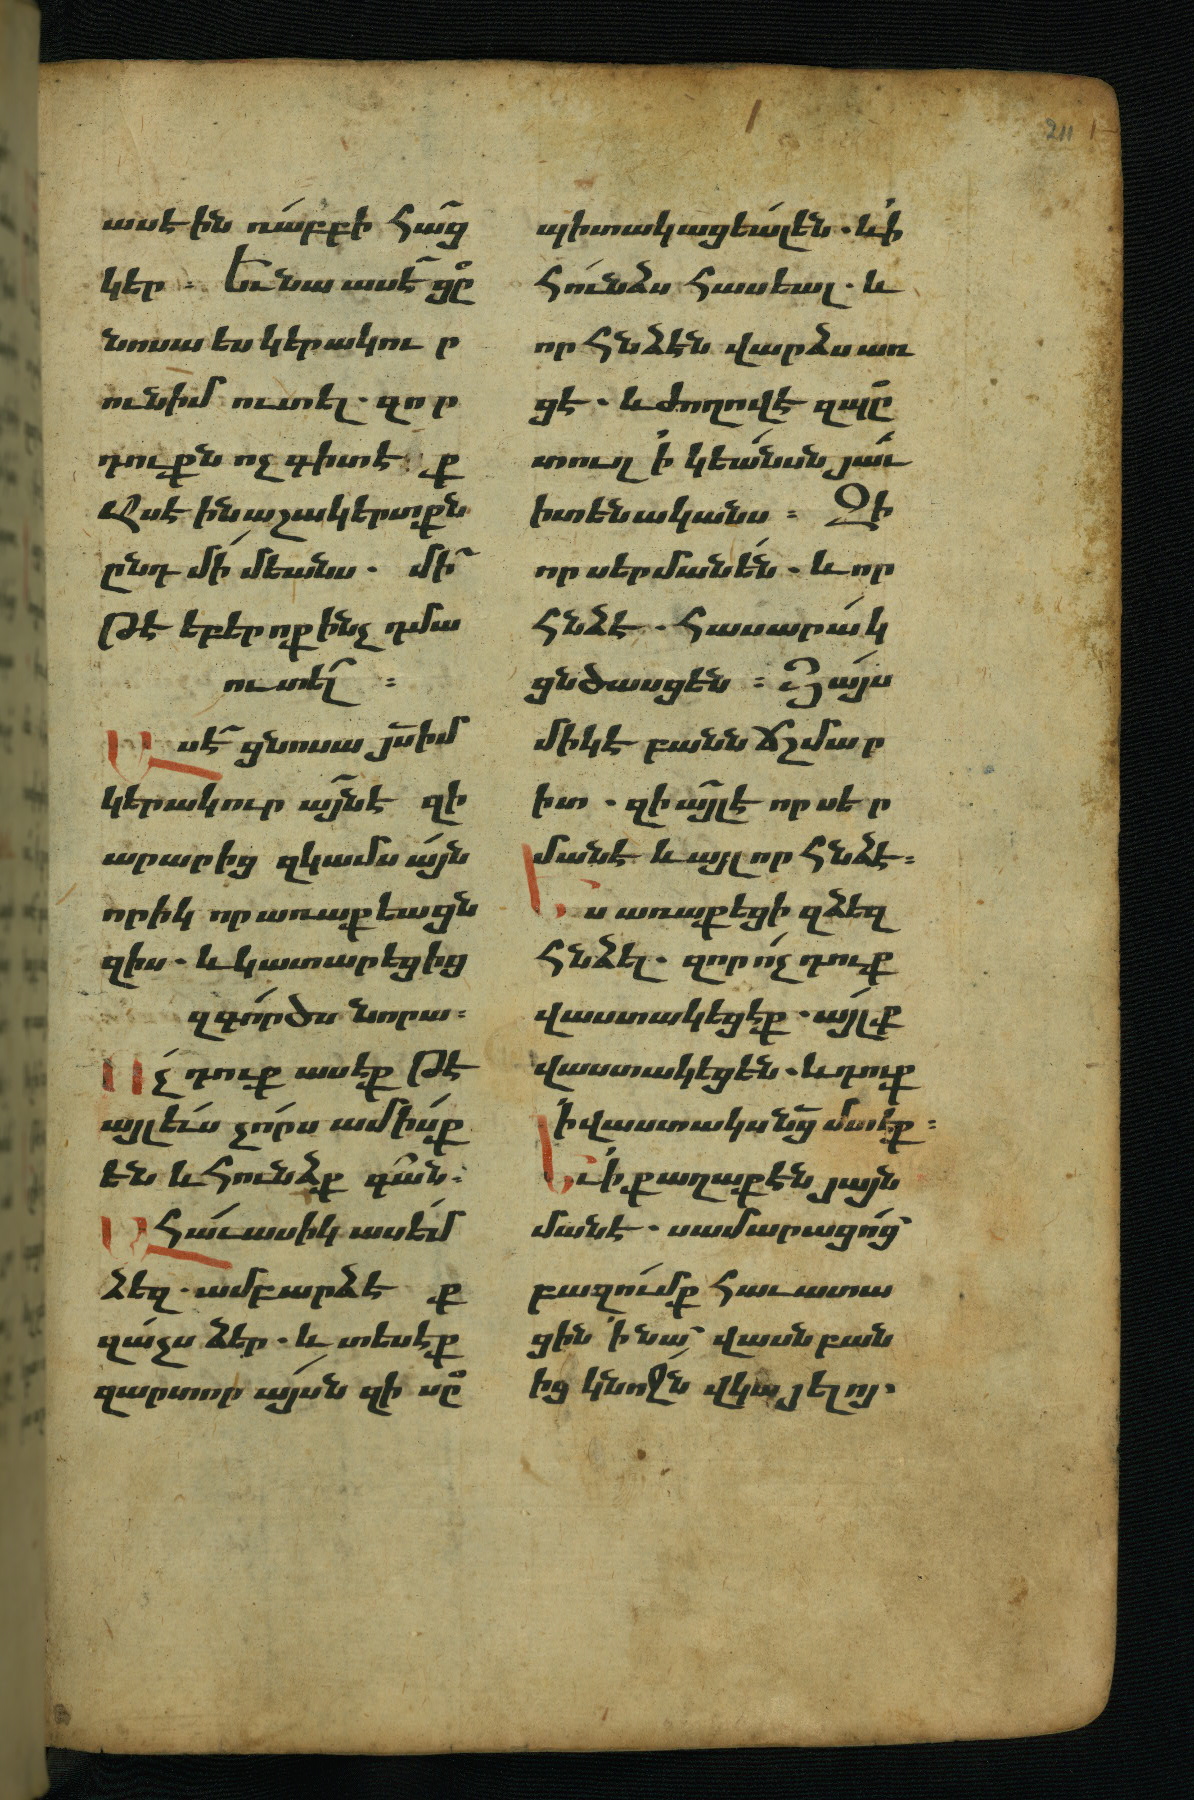 211
ասէին ռաբբի հաց
կեր։ Եւ նա ասէ ցը
նոսա ես կերակուր
ունիմ ուտել. զոր
դուքն ոչ գիտէք
Ասէին աշակերտքն
ընդ միմեանս. մի՞
թէ եբեր ոք ինչ դմա
ուտել։
Ասէ ցնոսա յս իմ
կերակուր այն է զի
արարից զկամս այն
որիկ որ առաքեացն
զիս. և կատարեցից
զգործս նորա։
Ոչ դուք ասէք թէ
այլ ևս չորս ամիսք
են և հունձք գան։
Ահաւասիկ ասեմ
ձեզ. ամբարձէք
զաչս ձեր. և տեսէք
զարտորայսն զի սը
պիտակացեալ են. և ի
հունձս հասեալ. և
որ հնձէն վարձս առ
ցէ. և ժողովէ զպը
տուղ ի կեանսն յաւ
իտենականս։ Զի
որ սերմանէն. և որ
հնձէ. հասարակ
ցնծասցեն։ Յայս
միկ է բանն ճշմար
իտ. զի այլ է որ սեր
մանէ և այլ որ հնձէ։
Ես առաքեցի զձեզ
հնձել. զոր ոչ դուք
վաստակեցէք. այլք
վաստակեցեն. և դուք
ի վաստակս նց մտէք։
Եւ ի քաղաքէն յայն
մանէ. սամարացոց
բազումք հաւատա
ցին ի նա վասն բան
ից կնոջն վկայելոյ.